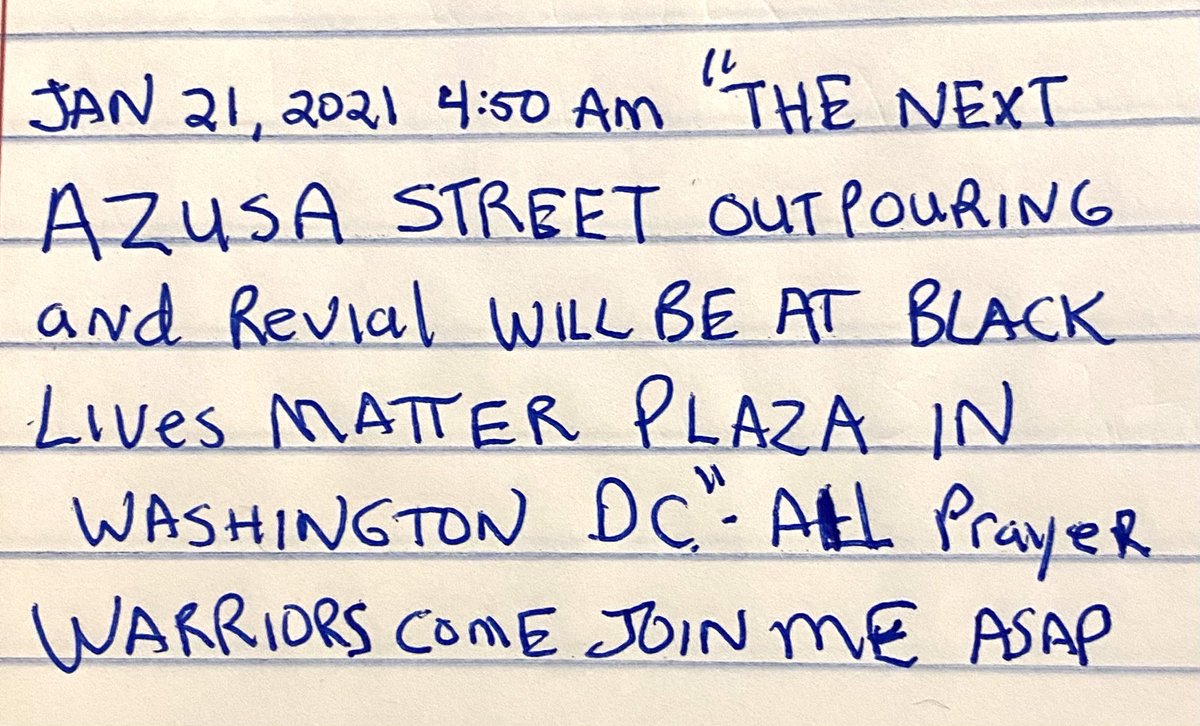 JAN 21, 2021 4:50 AM "THE NEXT
AZUSA STREET OUTPOURING
and Revial WILL BE AT BLACK
Lives MATTER PLAZA IN
WASHINGTON DC." - ALL Prayer
WARRIORS COME JOIN ME ASAP